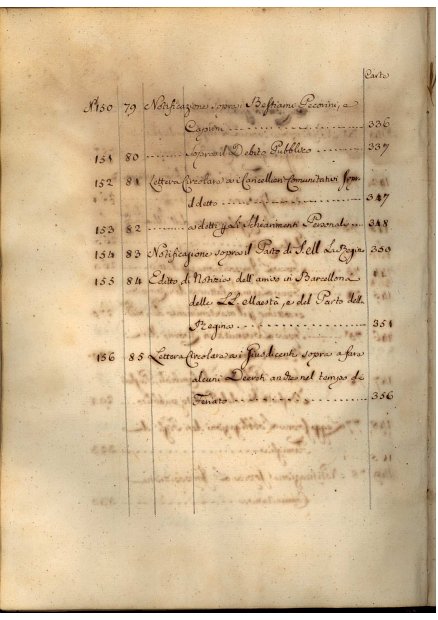 Carte
N.150 79 Notificazione sopra i Bestiami Pecorini, e
Caprini 336
151 80 sopra il Debito Pubblico 337
152 81 Lettera Circolare ai Cancellieri Comunitativi
detto 347
153 82 a detti Schiarimenti Personale 348
154 83 Notificazione sopra il Parto di S. M. La Regina 350
155 84 Editto di Notizia dell'arrivo in Barcellona
delle LL. Maestà, e del Parto della
Regina 351
156 85 Lettera Circolare ai Giusdicenti sopra a fare
alcuni Decreti anche nel tempo di
Feriato 356